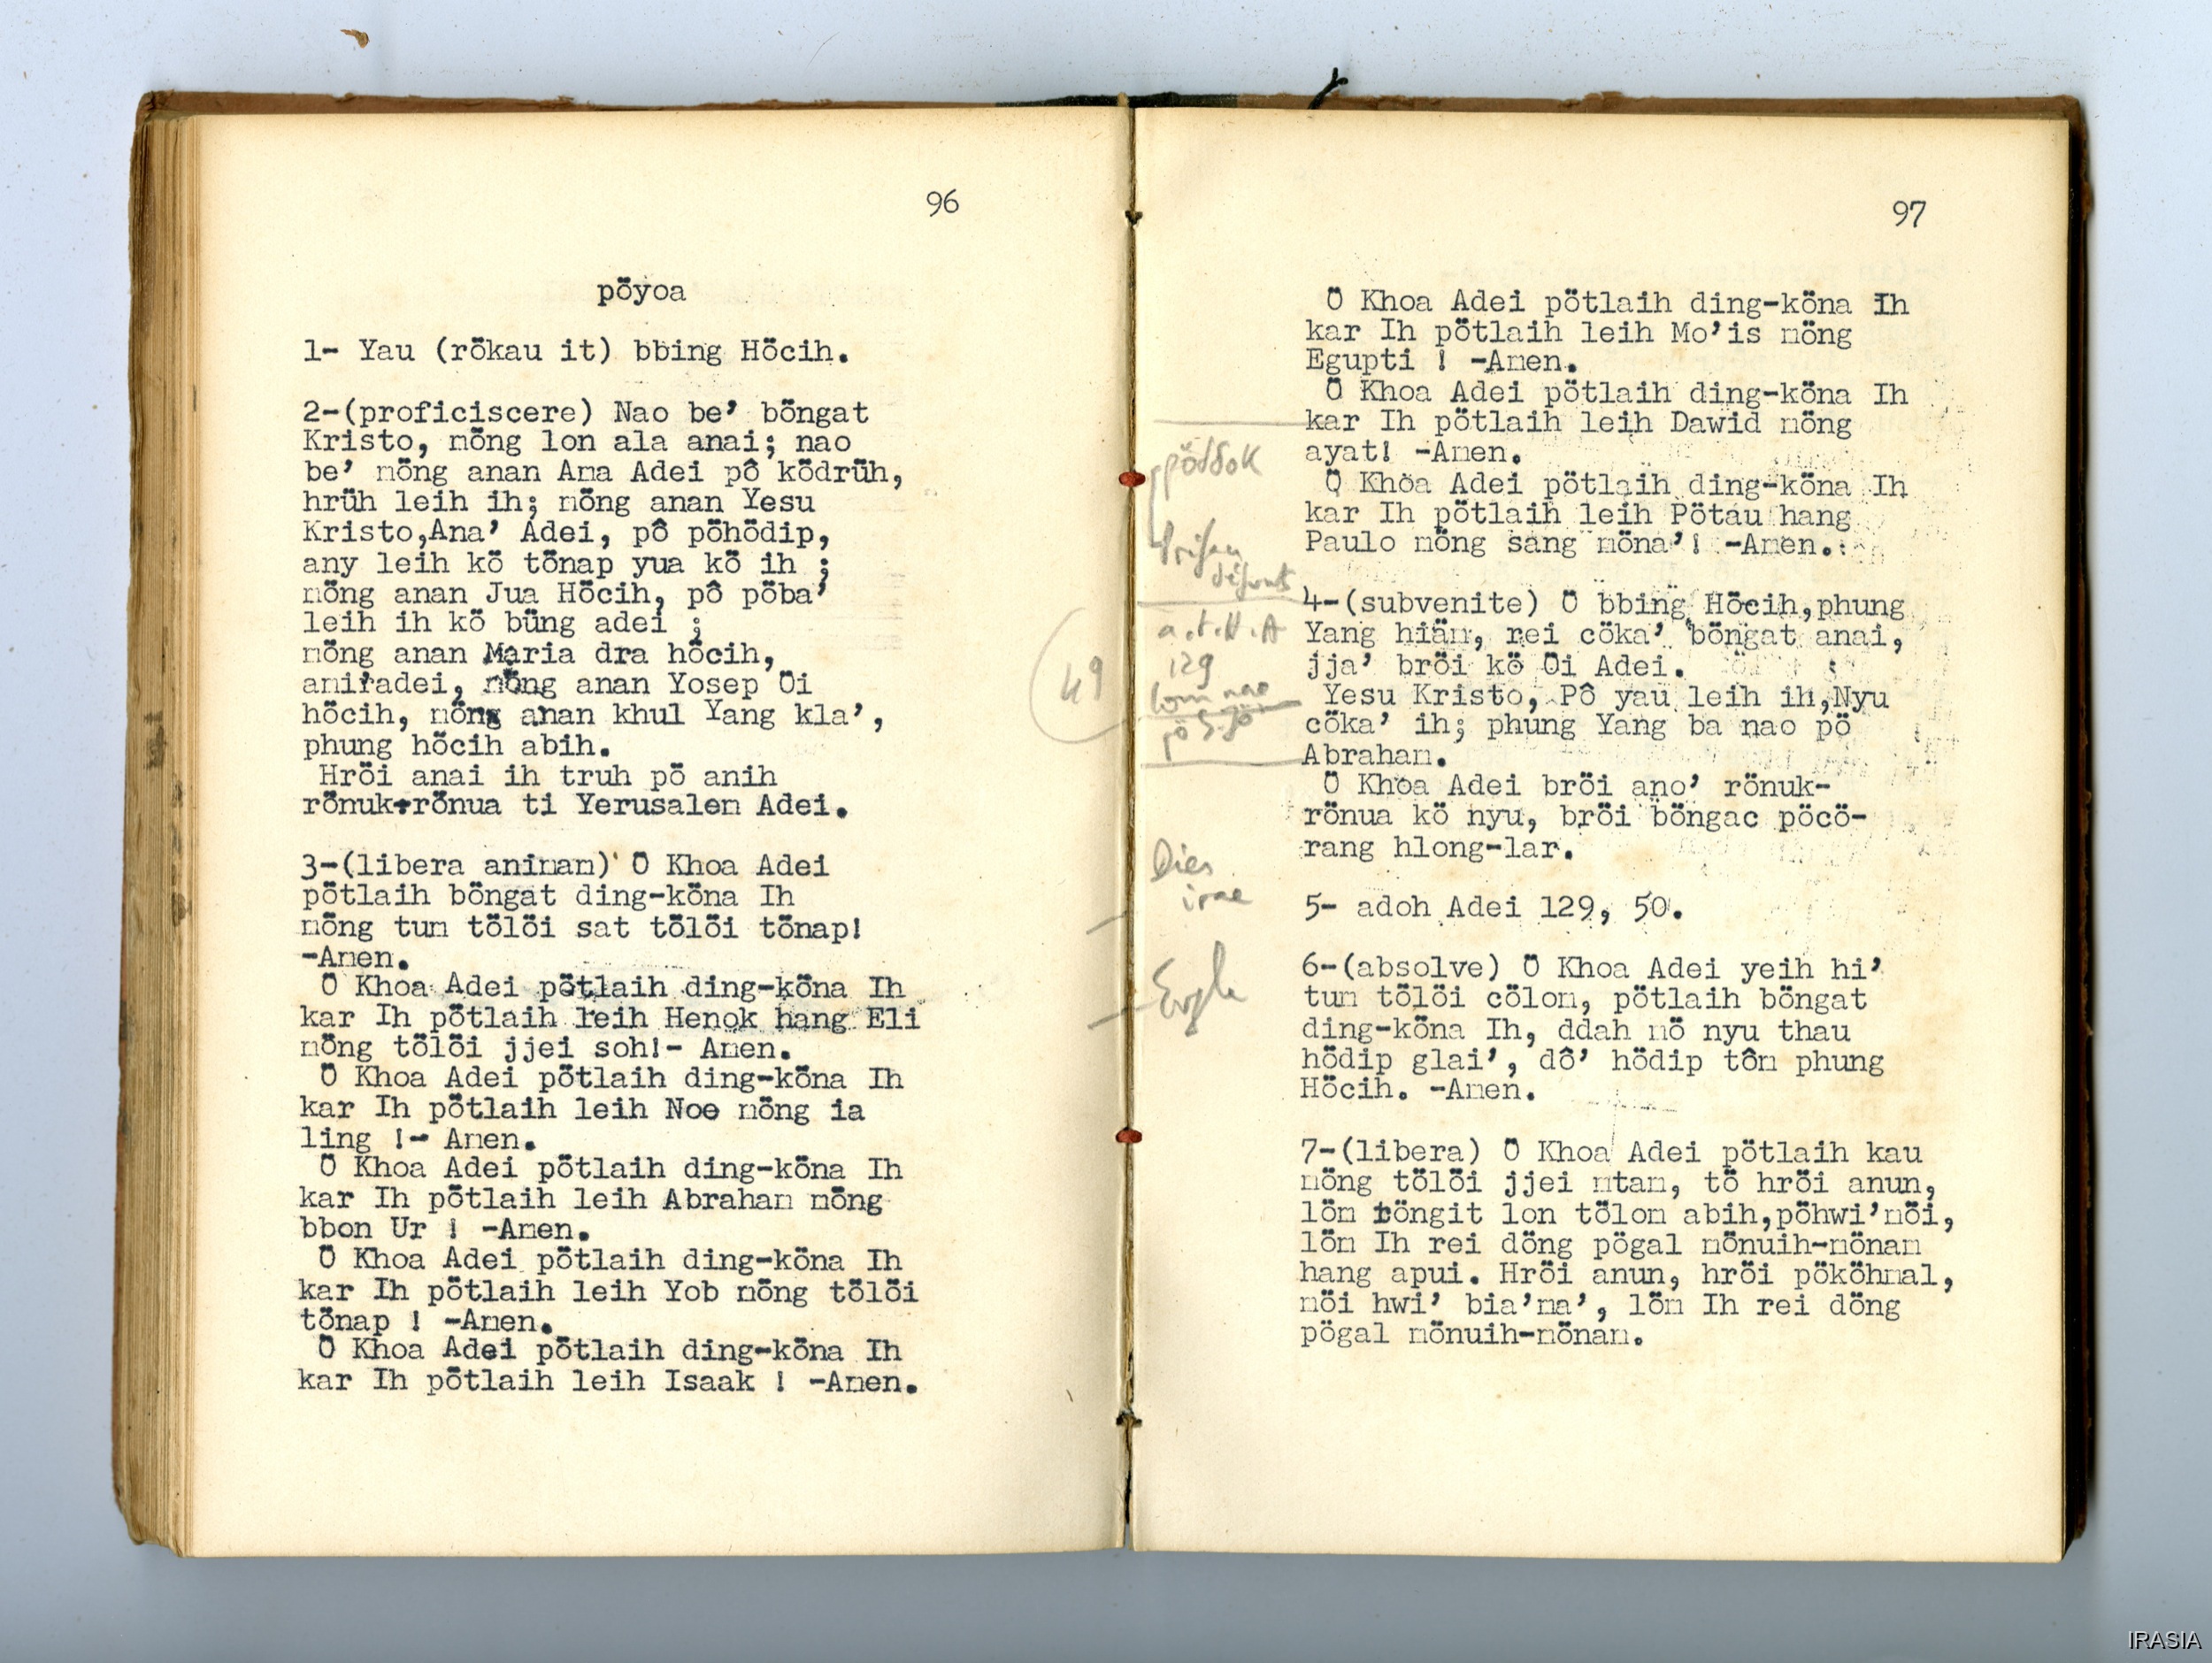 96
pöyoa
1- Yau (rökau it) bbing Höcih.
2-(proficiscere) Nao be’ böngat
Kristo, möng lon ala anai; nao
be’ möng anan Ama Adei pô ködrüh,
hrüh leih ih; möng anan Yesu
Kristo,Ana’ Adei, pô pöhödip,
any leih kö tönap yua kö ih ;
möng anan Jua Höcih, pô pöba’
leih ih kö büng adei ;
möng anan Maria dra höcih,
ami’adei, möng anan Yosep Öi
höcih, möng anan khul Yang kla’,
phung höcih abih.
Hröi anai ih truh pö anih
rönuk-rönua ti Yerusalem Adei.
3-(libera animam) Ö Khoa Adei
pötlaih böngat ding-köna Ih
möng tum tölöi sat tölöi tönap!
-Amen.
Ö Khoa Adei pötlaih ding-köna Ih
kar Ih pötlaih leih Henok hang Eli
möng tölöi jjei soh!- Amen.
Ö Khoa Adei pötlaih ding-köna Ih
kar Ih pötlaih leih Noe möng ia
ling !- Amen.
Ö Khoa Adei pötlaih ding-köna Ih
kar Ih pötlaih leih Abraham möng
bbon Ur ! -Amen.
Ö Khoa Adei pötlaih ding-köna Ih
kar Ih pötlaih leih Yob möng tölöi
tönap ! -Amen.
Ö Khoa Adei pötlaih ding-köna Ih
kar Ih pötlaih leih Isaak ! -Amen.
97
Ö Khoa Adei pötlaih ding-köna Ih
kar Ih pötlaih leih Mo’is möng
Egupti ! -Amen.
Ö Khoa Adei pötlaih ding-köna Ih
kar Ih pötlaih leih Dawid möng
ayat! -Amen.
Ö Khoa Adei pötlaih ding-köna Ih
kar Ih pötlaih leih Pötau hang
Paulo möng sang möna’! -Amen.
4-(subvenite) Ö bbing Höcih,phung
Yang hiäm, rei cöka’ böngat anai,
jja’ bröi kö Öi Adei.
Yesu Kristo, Pô yau leih ih,Nyu
cöka’ ih; phung Yang ba nao pö
Abraham.
Ö Khoa Adei bröi ano’ rönuk-
rönua kö nyu, bröi böngac pöcö-
rang hlong-lar.
5- adoh Adei 129, 50.
6-(absolve) Ö Khoa Adei yeih hi’
tum tölöi cölom, pötlaih böngat
ding-köna Ih, ddah mö nyu thau
hödip glai’, dô’ hödip tôm phung
Höcih. -Amen.
7-(libera) Ö Khoa Adei pötlaih kau
möng tölöi jjei mtam, tö hröi anun,
löm röngit lon tölom abih,pöhwi’möi,
löm Ih rei döng pögal mönuih-mönam
hang apui. Hröi anun, hröi pököhmal,
möi hwi’ bia’ma’, löm Ih rei döng
pögal mönuih-mönam.
a.t.H.A
129
49
Dies
irae
IRASIA